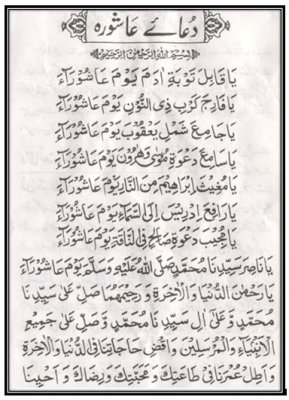 دُعَائے عَاشُوره
بِسْمِ اللهِ الرَّحْمٰنِ الرَّحِيْمِ
يَا قَابِلَ تَوْبَةِ اٰدَمَ يَوْمَ عَاشُوْرَآءَ
يَا فَارِجَ كَرْبِ ذِى النُّوْنِ يَوْمَ عَاشُوْرَآءَ
يَا جَامِعَ شَمْلِ يَعْقُوْبَ يَوْمَ عَاشُوْرَآءَ
يَا سَامِعَ دَعْوَةِ مُوْسٰى وَهٰرُوْنَ يَوْمَ عَاشُوْرَآءَ
يَا مُغِيْثَ اِبْرَاهِيْمَ مِنَ النَّارِ يَوْمَ عَاشُوْرَآءَ
يَا رَافِعَ اِدْرِيْسَ اِلَى السَّمَآءِ يَوْمَ عَاشُوْرَآءَ
يَا مُجِيْبَ دَعْوَةِ صَالِحٍ فِى النَّاقَةِ يَوْمَ عَاشُوْرَآءَ
يَا نَاصِرَ سَيِّدِنَا مُحَمَّدٍ صَلَّى اللهُ عَلَيْهِ وَسَلَّمَ يَوْمَ عَاشُوْرَآءَ
يَا رَحْمٰنَ الدُّنْيَا وَالْاٰخِرَةِ وَرَحِيْمَهُمَا صَلِّ عَلٰى سَيِّدِنَا
مُحَمَّدٍ وَّعَلٰى اٰلِ سَيِّدِنَا مُحَمَّدٍ وَّصَلِّ عَلٰى جَمِيْعِ
الْاَنْبِيَآءِ وَالْمُرْسَلِيْنَ وَاقْضِ حَاجَاتِنَا فِى الدُّنْيَا وَالْاٰخِرَةِ
وَاَطِلْ عُمُرَنَا فِىْ طَاعَتِكَ وَمَحَبَّتِكَ وَرِضَاكَ وَاَحْيِنَا